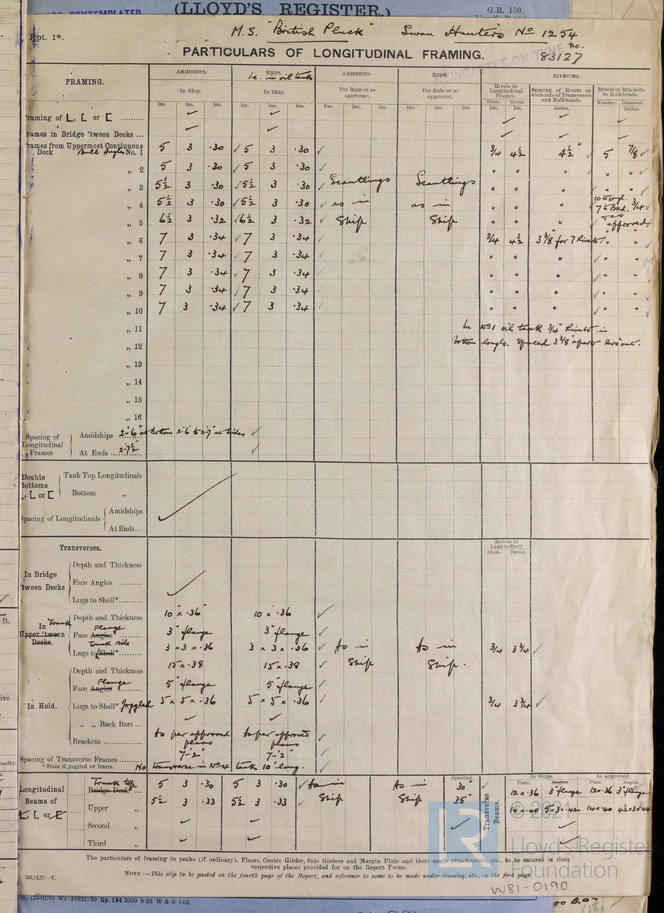 (LLOYD'S REGISTER.)
G.R. 130.
Rpt. 1*.
M.S. "British Pluck" Swan Hunters No 1254
No. 83127
PARTICULARS OF LONGITUDINAL FRAMING.
FRAMING.
AMIDSHIPS. ENDS. AMIDSHIPS. ENDS. RIVETING.
i.e. in oil tanks
In Ship. In Ship. Per Rule or as approved. Per Rule or as approved.
Rivets in Longitudinal Frames. Spacing of Rivets on each side of Transverses and Bulkheads. Rivets in Brackets to Bulkheads.
Ins. Ins. Ins. Ins. Ins. Ins. Ins. Ins. Ins. Ins. Ins. Ins. Diam. Spcng. Inches. Number. Diameter Inches.
Framing of L, L or [
Frames in Bridge 'tween Decks ...
Frames from Uppermost Continuous
Deck Bulb Angles No. 1 5 3 ·30 5 3 ·30 3/4 4½ 4½" 5 7/8
„ 2 5 3 ·30 5 3 ·30 " " " " "
„ 3 5½ 3 ·30 5½ 3 ·30 Scantlings Scantlings " " "
„ 4 5½ 3 ·30 5½ 3 ·30 as in as in " " " 3/4
„ 5 6½ 3 ·32 6½ 3 ·32 Ship Ship " " " as approved
„ 6 7 3 ·34 7 3 ·34 3/4 4½ 3⅜ for 7 Rivets " "
„ 7 7 3 ·34 7 3 ·34 " " " " "
„ 8 7 3 ·34 7 3 ·34 " " " " "
„ 9 7 3 ·34 7 3 ·34 " " " " "
„ 10 7 3 ·34 7 3 ·34 " " " " "
„ 11 In No1 oil tank 3/4" Rivets in
„ 12 bottom longls. Spaced 3⅜" apart thro'out.
„ 13
„ 14
„ 15
„ 16
Spacing of Longitudinal Frames
Amidships 2'-6" at bottom 2'6 to 2'9" at sides
At Ends ... 2-7½"
Double Bottoms L, L or [
Tank Top Longitudinals
Bottom „
Spacing of Longitudinals
Amidships
At Ends...
Transverses.
Rivets in Lugs to Shell
Diam. Spcng.
In Bridge 'tween Decks
Depth and Thickness
Face Angles
Lugs to Shell*
In Trunk Upper 'tween Decks.
Depth and Thickness 10" × ·36" 10 × ·36
Face Angles Flange 3" flange 3" flange
Trunk side
Lugs to Shell* 3 × 3 × ·36 3 × 3 × ·36 As in As in 3/4 3¾
In Hold.
Depth and Thickness 15 × ·38 15 × ·38 Ship Ship.
Face Angles Flange 5" flange 5" flange
Lugs to Shell* Joggled 5 × 5 × ·36 5 × 5 × ·36 3/4 3¾
„ „ Back Bars
Brackets to per approved plans As per approved plans
Spacing of Transverse Frames 7'-2" 7'-2"
* State if joggled or liners. No transverse in No4 tank 10' long.
Longitudinal Beams of L, L or [
Spacing. Transverse Beams. In Ships. As approved.
Plate. Angles. Plate. Angles.
Trunk top Bridge Deck 5 3 ·30 5 3 ·30 As in As in 30 12 × ·36 3" flange 12 × ·36 3" flange
Upper „ 5½ 3 ·33 5½ 3 ·33 Ship Ship 35"
Second „
Third „
The particulars of framing in peaks (if ordinary), Floors, Centre Girder, Side Girders and Margin Plate and their angle attachments, etc., to be entered in their
respective places provided for on the Report Forms.
NOTE:—This slip to be pasted on the fourth page of the Report, and reference to same to be made under framing, etc., on the first page.
© 2021
Lloyd's Register
Foundation
W81-0190